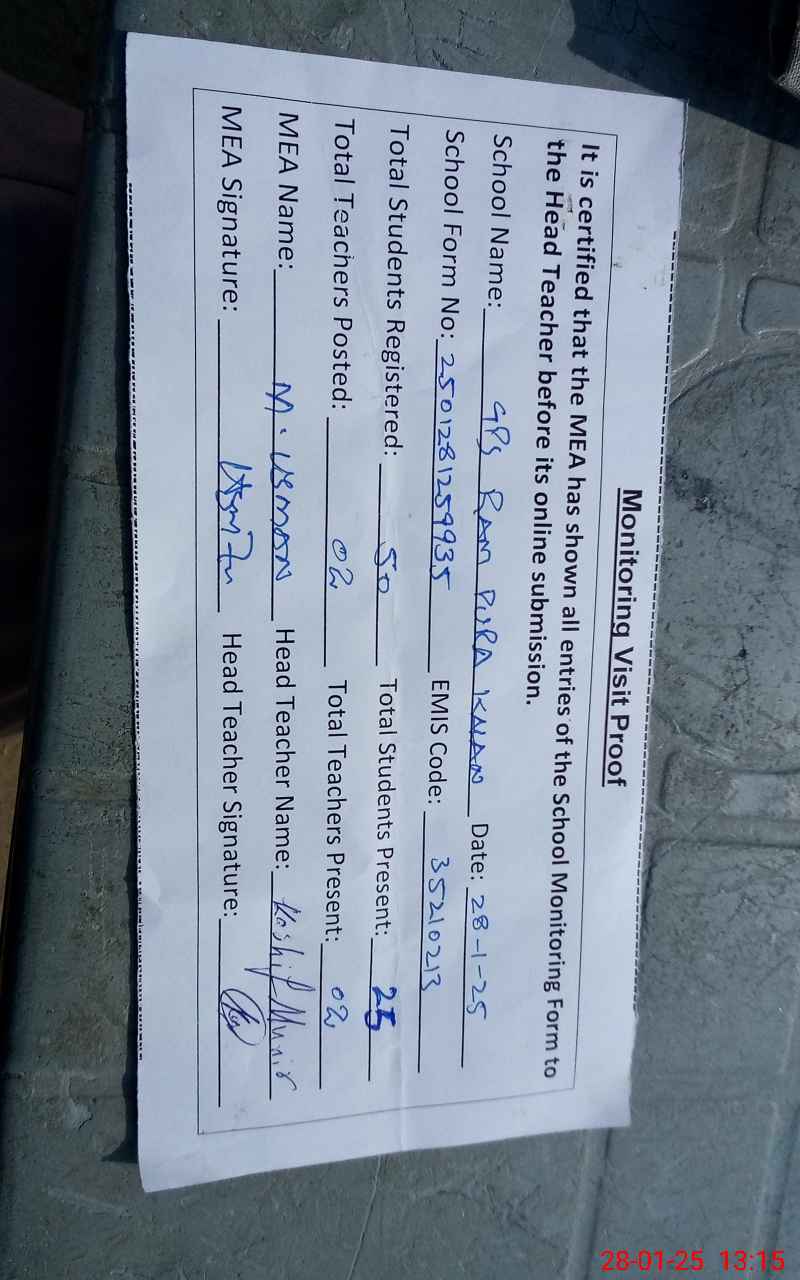 Monitoring Visit Proof
It is certified that the MEA has shown all entries of the School Monitoring Form to
the Head Teacher before its online submission.
School Name: GPS RAM PURA KHAN Date: 28-1-25
School Form No: 2501281259935 EMIS Code: 35210213
Total Students Registered: 50 Total Students Present: 25
Total Teachers Posted: 02 Total Teachers Present: 02
MEA Name: M. USMAN Head Teacher Name: Kashif Munir
MEA Signature: Head Teacher Signature:
28-01-25 13:15